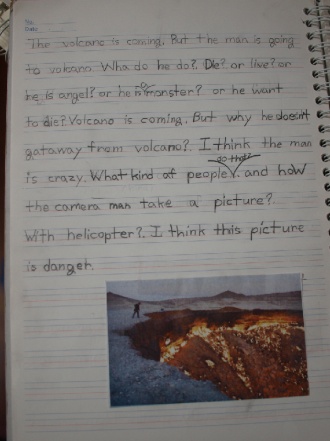 No.
Date
The volcano is coming. But the man is going
to volcano. Wha do he do? Die? or live? or
he is angel? or he is monster? or he want
to die? Volcano is coming. But why he doesn't
gataway from volcano?. I think the man
is crazy. What kind of people do that? and how
the camera man take a picture?
With helicopter?. I think this picture
is danger.